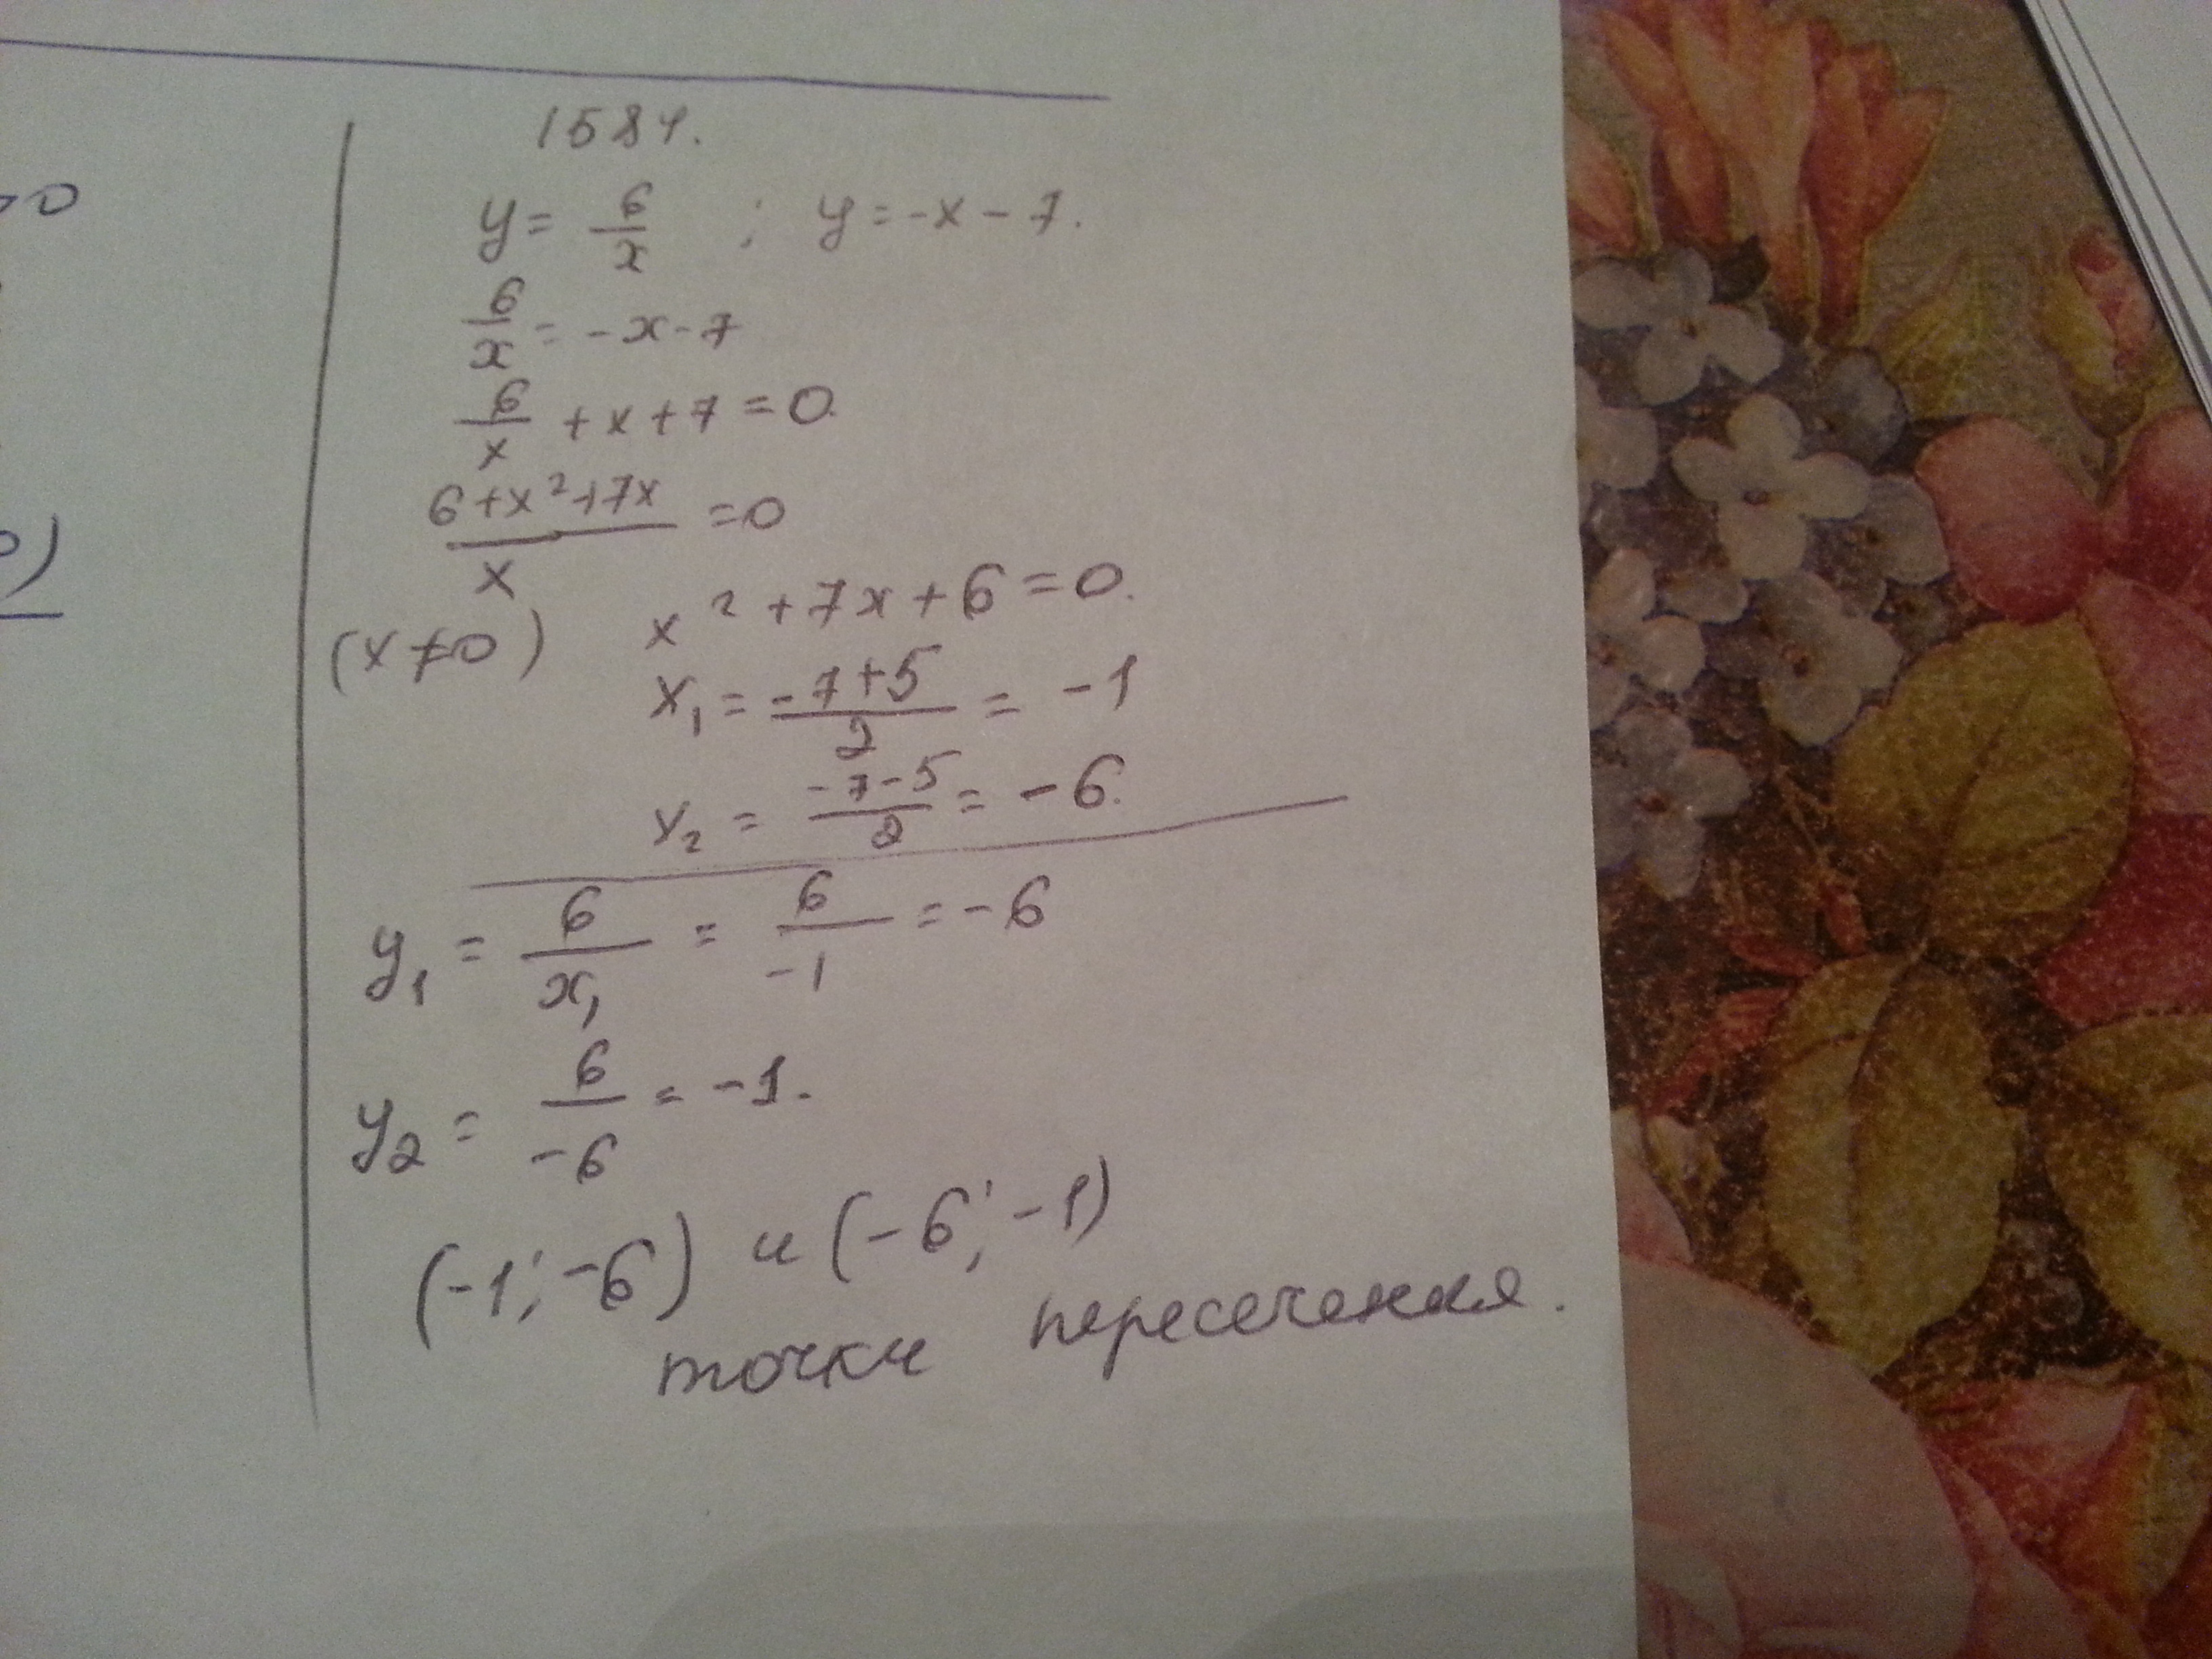 1584.
y = 6/x ; y = -x - 7.
6/x = -x - 7
6/x + x + 7 = 0.
(6 + x² + 7x)/x = 0
(x ≠ 0) x² + 7x + 6 = 0.
x₁ = (-7+5)/2 = -1
x₂ = (-7-5)/2 = -6.
y₁ = 6/x₁ = 6/-1 = -6
y₂ = 6/-6 = -1.
(-1; -6) и (-6; -1)
точки пересечения.